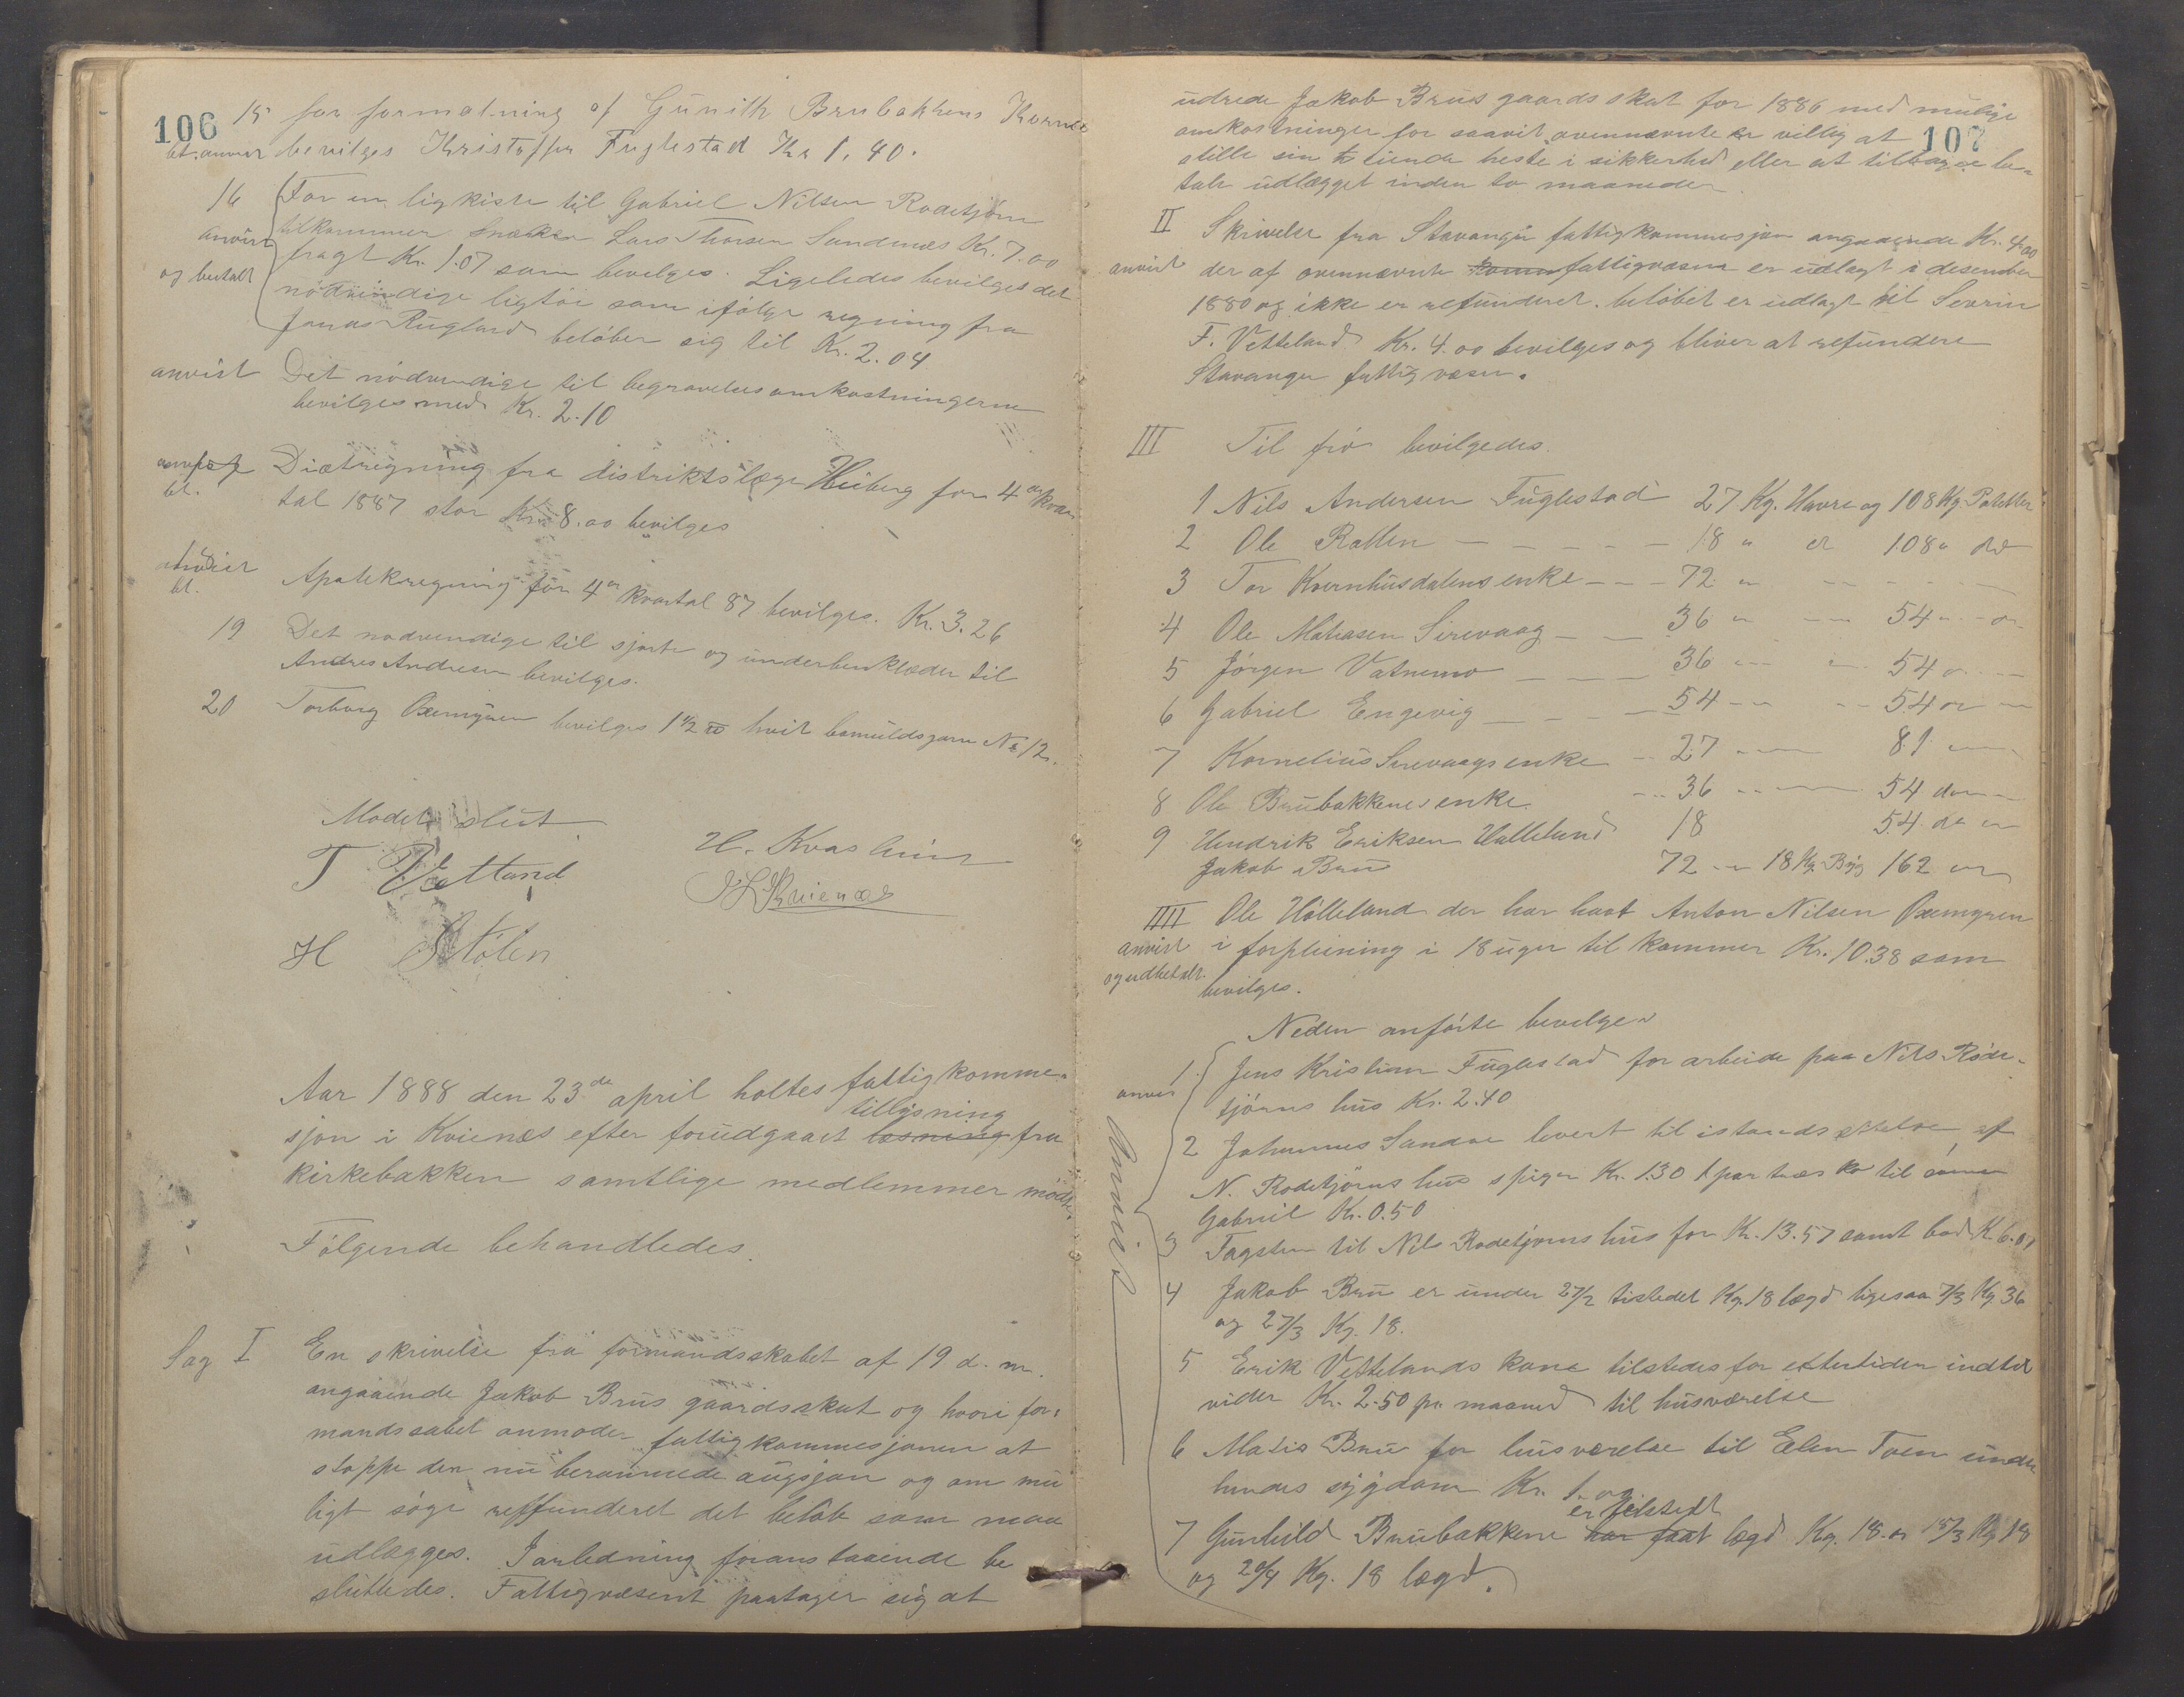 106
15 for formalning af Gunilh Brubakkens Korn
bt. anvist bevilges Kristoffer Fuglestad Kr 1.40.
16 For en ligkiste til Gabriel Nilsen Rodetjørn
tilkommer Snekker Lars Thorsen Sandnæs Kr. 7.00
anvist fragt Kr. 1.07 som bevilges. Ligeledes bevilges det
og betalt nødvendige ligtøi som ifølge regning fra
Jonas Rugland beløber sig til Kr. 2.04
anvist Det nødvendige til begravelsesomkostningerne
bevilges med Kr. 2.10
Diætregning fra distriktslæge Heiberg for 4de kvar
bt. tal 1887 stor Kr. 8.00 bevilges
anvist
bt. Apotekregning for 4de kvartal 87 bevilges. Kr. 3.26
19 Det nødvendige til sjorte og underbenklæder til
Andres Andresen bevilges.
20 Torborg Øxemyren bevilges 1 1/2 hvit bomuldsgarn No 12.
Mødet slut.
T Vetland
H. Kvashiim
J L Kvienæs
H Stølen
Aar 1888 den 23de april holtes fattigkomme-
tillysning
sjon i Kvienæs efter forudgaaet læsning fra
kirkebakken samtlige medlemmer mødte.
Følgende behandledes.
Sag I En skrivelse fra formandsskabet af 19 d. m.
angaaende Jakob Brus gaardsskat og hvori for-
mandssabet anmoder fattigkommesjonen at
stoppe den nu berammede augsjon og om mu
ligt søge reffunderet det beløb som maa
udlægges. I anledning foranstaaende be
sluttedes. Fattigvæsent paatager sig at
107
udrede Jakob Brus gaardsskat for 1886 med mulige
omkostninger for saavit ovennævnte er villig at
stille sin tiende heste i sikkerhed eller at tilbage be-
tale udlægget inden to maaneder.
II Skrivelse fra Stavanger fattigkommesjon angaaende Kr. 4.00
anvist der af ovennævnte fattigvæsen er udlagt i desember
1880 og ikke er refunderet. beløbet er udlagt til Sevrin
F. Vetteland Kr. 4.00 bevilges og bliver at refundere
Stavanger fattigvæsen.
III Til frø bevilgedes.
1 Nils Andersen Fuglestad 27 Kg. Havre og 108 Kg. Poteter
2 Ole Rotten — — — — 18 " " 108 " do
3 Tor Kvernhusdalens enke — — 72 "
4 Ole Mathiasen Sirevaag — — 36 " — 54 "
5 Jörgen Vatnemo — — — 36 — — 54
6 Gabriel Engevig — — — 54 — — 54
7 Kornelius Sirevaags enke — 27 — 81
8 Ole Brubakkenes enke — 36 — 54 do
9 Hendrik Eriksen Hølleland 18 54 do
Jakob Bru 72 — 18 Kg. Byg 162
IIII Ole Hölleland der har havt Anton Nilsen Øxemyren
anvist i forpleining i 18 uger til kommer Kr. 10.38 som
og udbetalt. bevilges.
Neden anførte bevilges
1. Jens Kristian Fuglestad for arbeide paa Nils Röde-
anvist tjörns hus Kr. 2.40
2 Johannes Sandve levert til istandsettelse af
N. Rodetjørns hus spiger Kr. 1.30 1 par træsko til sönnen
Gabriel Kr. 0.50
anvist
3 Tagsten til Nils Rodetjørns hus for Kr. 13.57 samt bord K. 6.01
4 Jakob Bru er under 27/2 tilstedet Kg. 18 lægd ligesaa 7/3 Kg 36
og 27/3 Kg. 18.
5 Erik Vettelands kone tilstedes for eftertiden indtil
vider Kr. 2.50 pr. maaned til husværelse
6 Matis Bru for husværelse til Elen Tven under
hendes sygdom Kr. 1.00
er tilstedt
7 Gunhild Brubakkene har faat lægd Kg. 18. 15/3 Kg 18
og 20/4 Kg. 18 lægd.